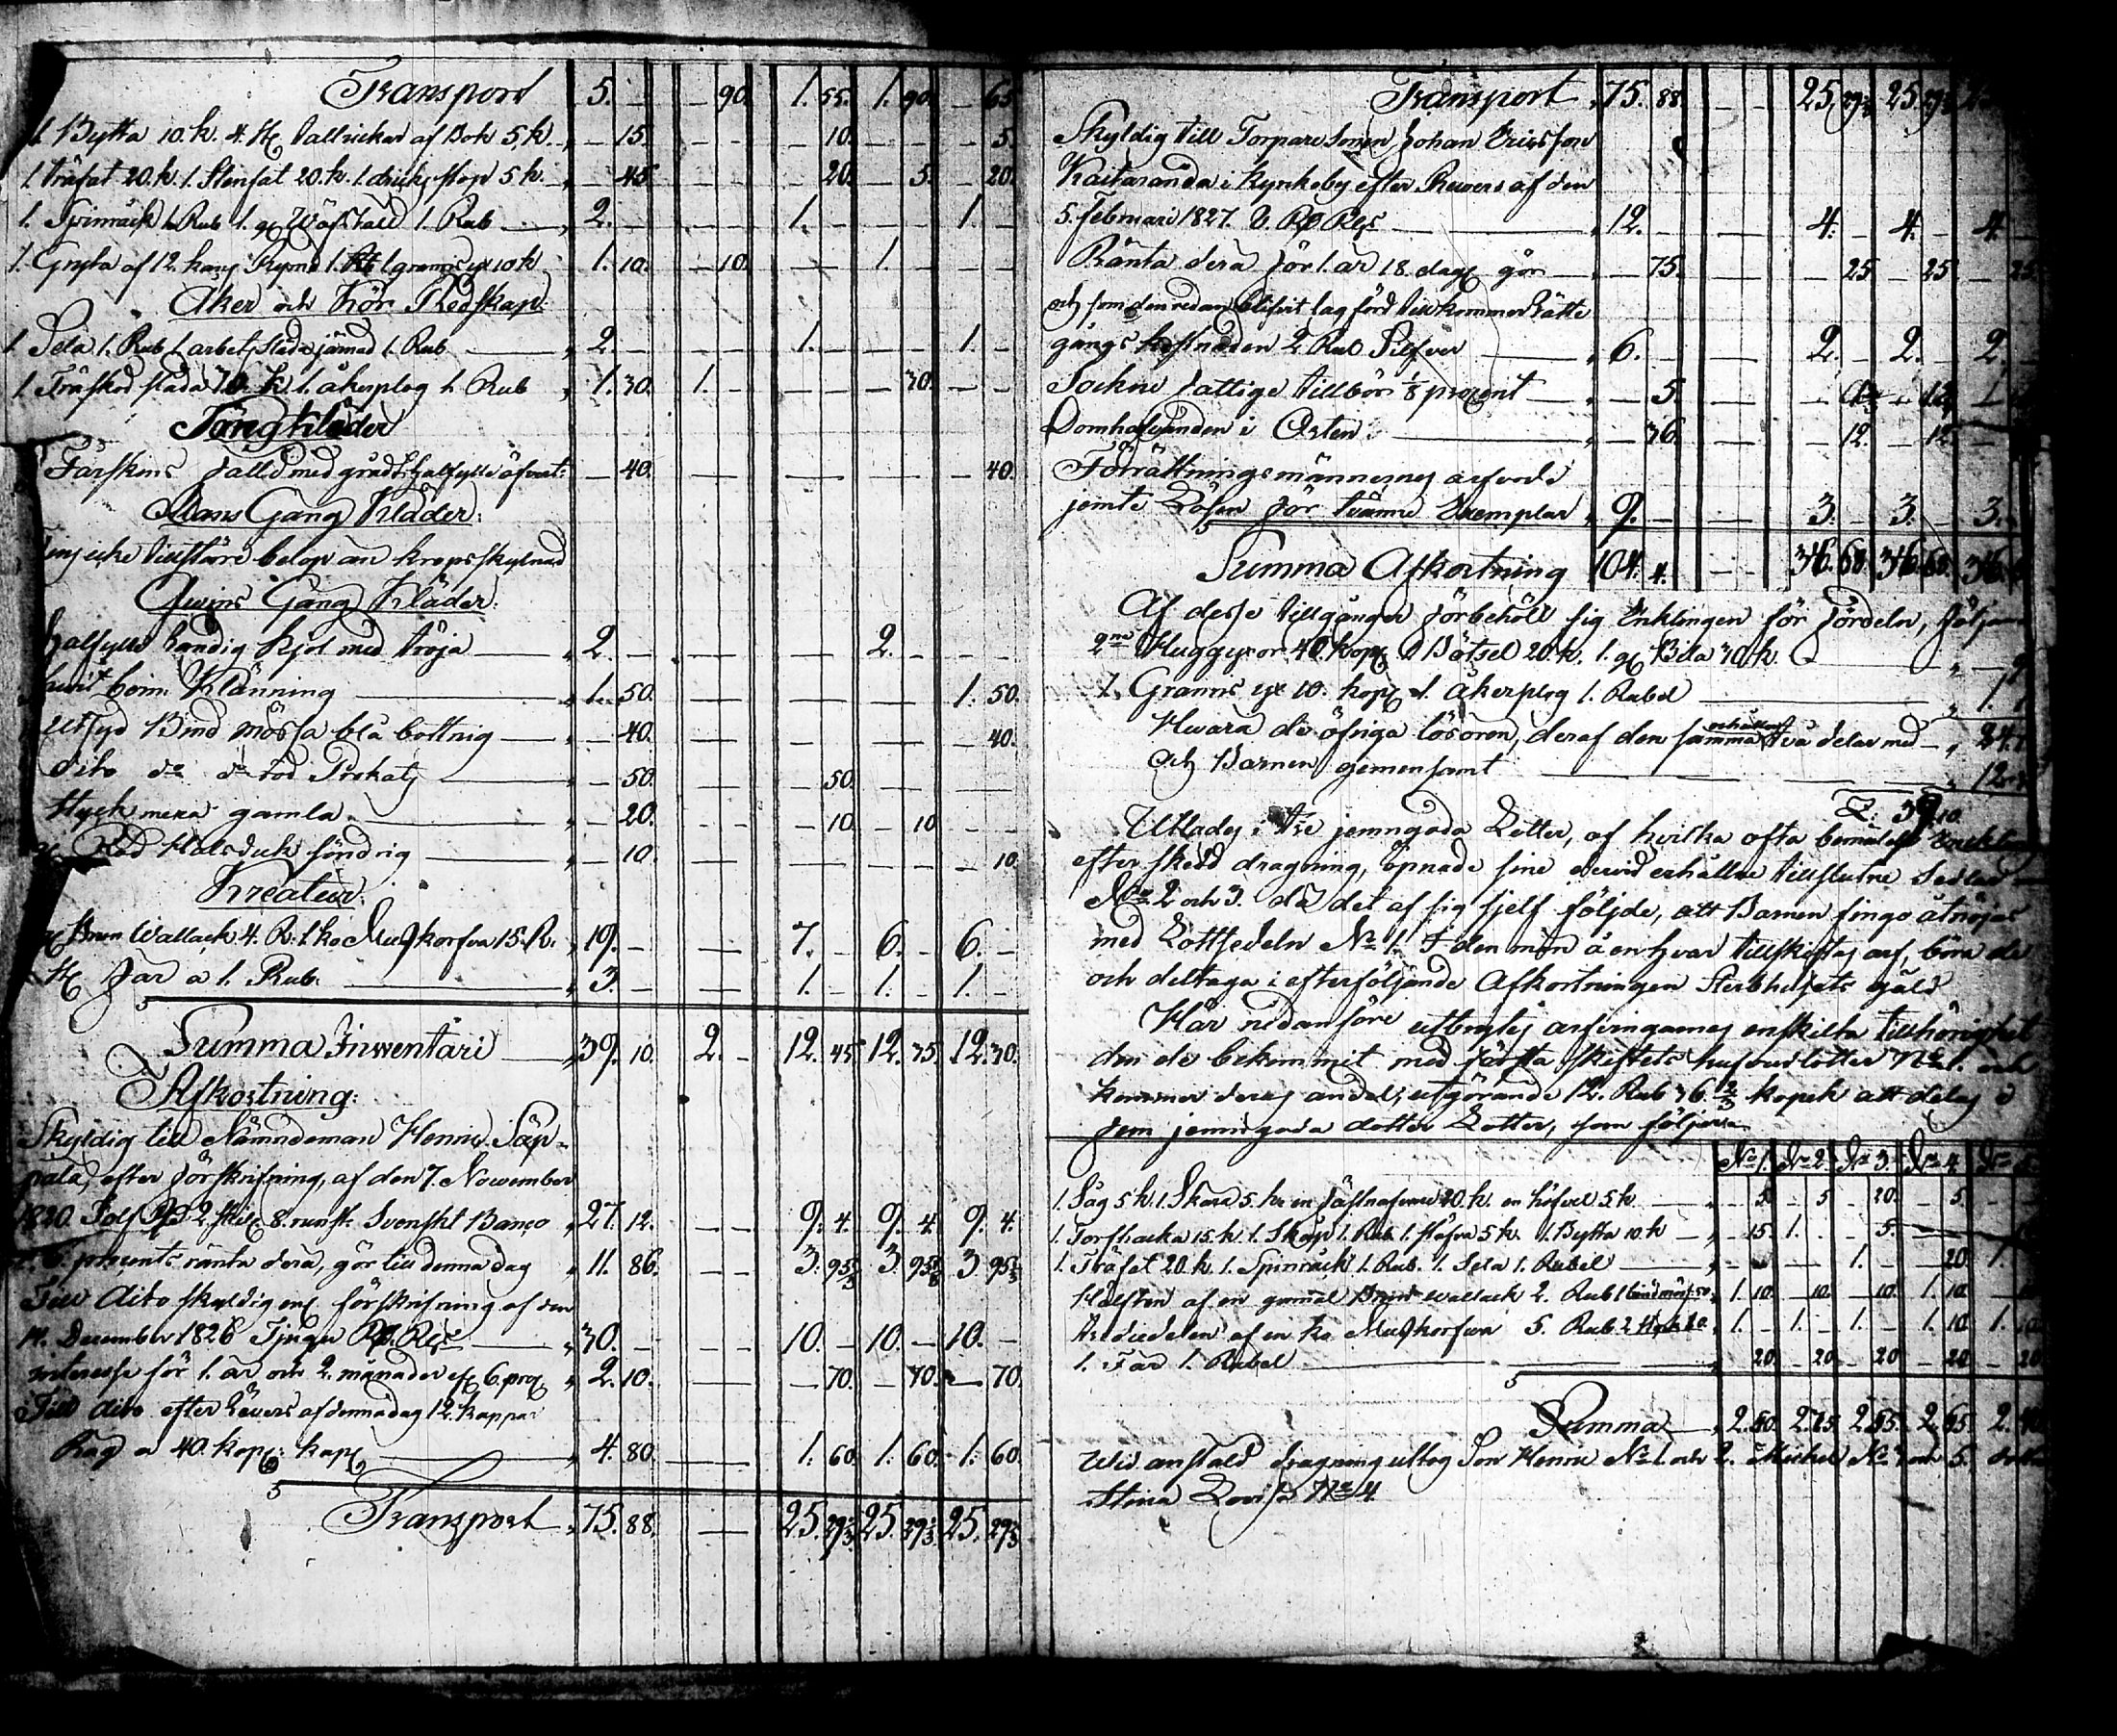 Transport 5. — — 90. 1. 55. 1. 90. — 65.
1. Bytta 10. k. 4. st tallrickar af Bok 5. k. — 15. — — — 10. — — — 5.
1. träfat 20. k. 1. Stenfat 20. k. 1. dricks stop 5 k. — 45. — — — 20. — 5. — 20.
1. Spinråck 1. Rub 1. Wäfstall 1. Rub — 2. — — — 1. — — — 1. —
1. Gryta af 12. kan Rymd 1. 10 k 1. 10. — 10. — — 1. — — —
Åker och Kör Redskap:
1. Sela 1. Rub 1. arbets släde järnad 1. Rub — 2. — — — 1. — — — 1. —
1. Träskod släda 30. k. 1. åkerplog 1. Rub 1. 30. 1. — — — — 30. — —
Sängkläder
Fårskins fäll med 40. — — — — — — — 40.
Mans Gång Kläder:
icke tillstörre belop än kropsskylnad
Qwins Gång Kläder:
halfylle randig kjol med tröja — 2. — — — — — 2. — — —
Klänning — 1. 50. — — — — — — 1. 50.
utsyd Bind mössa blå bottnig — — 40. — — — — — — — 40.
dito do do röd — — 50. — — — 50. — — — —
Styck mera gamla — — 20. — — — 10. — 10. — —
Röd Halsduk söndrig — — 10. — — — — — — — 10.
Kreatur:
Brun Wallack 4. R. 1. ko Mustkorfva 15. R. 19. — — — 7. — 6. — 6. —
st får a 1. Rub. — 3. — — — 1. — 1. — 1. —
Summa Inwentari — 39. 10. 2. — 12. 45. 12. 35. 12. 30.
Afkortning:
Skyldig till Nämndeman Henric Säp-
pälä, efter förskrifning, af den 7. November
1820. Tolf 2 skill 8. runst. Svenskt Banco 27. 12. — — 9. 4. 9. 4. 9. 4.
6. procents ränta derå, gör till denna dag 11. 86. — — 3. 95 1/3 3. 95 1/3 3. 95 1/3
Till dito skyldig enl förskrifning af den
14. December 1826 Tjugu — 30. — — — 10. — 10. — 10. —
interesse för 1. år och 2. månader 6. proc 2. 10. — — — 70. — 70. — 70.
Till dito efter Revers af denna dag 12. kappar
Råg a 40. kop: kap — 4. 80. — — 1. 60. 1. 60. 1. 60.
Transport 75. 88. — — 25. 29 1/3 25. 29 1/3 25. 29 1/3
Transport 75. 88. — — 25. 29 1/3 25. 29 1/3
Skyldig till Torpare Sonen Johan Ericsson
Kaitaranda i Kynkeby efter Revers af den
5. februari 1827. — 12. — — 4. — 4. — 4. —
Ränta derå för 1. år 18. dag gör — — 75. — — — 25 — 25 — 25
och som den redan blifvit lagförd tillkommer Rätte
gångs kostnaden 2 Rub Silfver — 6. — — — 2. — 2. — 2.
Sockne fattige tillbör 1/8 procent — — 5.
Domhafvanden i Orten — — 36. — — — 12. — 12. —
Förrättningsmännernes arfvode
jemte Lösen för tvänne Exemplar 9. — — — 3. — 3. — 3.
Summa Afkortning 104. 4. — — 34. 68. 34. 68. 34.
Af desse tillgånger förbehöll sig Enklingen för fördeln,
2ne Huggyxor 40. kop 1 Bätsel 20. k. 1. Bila 30. k.
1. Granns yx 10. kop 1. åkerplog 1. Rubel
Hvara de öfriga lösören, deraf den samma erhåller två delar med — 24.
Och Barnen gemensamt — 12.
S. 39. 10.
Utlades i Tre jemngoda Lotter, af hvilka ofta bemälde
efter skedd dragning, öpnade sine dervid erhållne tillslutne Sedlar
No 2 och 3. då det af sig sjelf följde, att Barnen fingo åtnöjas
med Lottsedeln No 1. I den mon å en hvar tillskiftas arf, böra de
och deltaga i efterföljande Afkortningen Sterbhusets gäld
Här nedanföre utbrytes arfvingarnes enskilta tillhörighet
den de bekommit med första skiftets hufvudlotter No 1. och
kommer deras andel, utgörande 12. Rub 36 2/3 kopek att delas i
fem jemngoda dotter Lotter, som följer
No 1. No 2. No 3. No 4. No 5.
1. Såg 5 k. 1. Skära 5. k. en 20. k. en höfvel 5 k — 5. — 5 — 20. — 5.
1. Torfhacka 15. k. 1. Skåp 1. Rub. 1. 5 k. 1. Bytta 10. k — 15. 1. — — 5. —
1. Träfat 20 k. 1. Spinråck 1. Rub. 1. Sela 1. Rubel — — — — 1. — — 20. 1.
Hälften af en gammal Brun wallack 2. Rub 1 bindmöss 50. 1. 10. — 10. — 10. 1. 10.
tredjedelen af en ko Mustkorfva 5. Rub 1. — 1. — 1. — 1. 10 1.
1. Får 1. Rubel — 20. — 20. — 20 — 20 — 20
Summa — 2. 50. 2. 2. 2. 2.
Wid anstäld dragning uttog Son Henric No 1. och 2. Michel No 3 och 5. dotter
Stina Lovisa No 4.